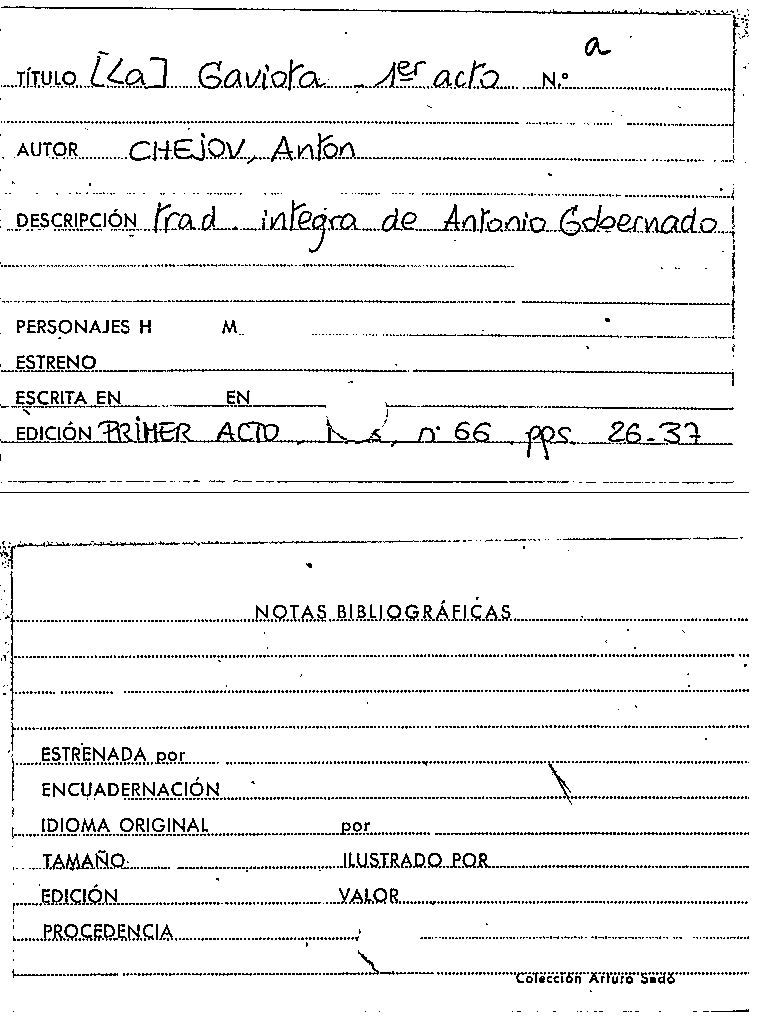 a
TÍTULO [La] Gaviota - 1er acto N.º
AUTOR CHEJOV, Anton
DESCRIPCIÓN trad. integra de Antonio Gobernado
PERSONAJES H M.
ESTRENO
ESCRITA EN EN
EDICIÓN PRIMER ACTO, nº 66 pps. 26-37
NOTAS BIBLIOGRÁFICAS
ESTRENADA por
ENCUADERNACIÓN
IDIOMA ORIGINAL por
TAMAÑO ILUSTRADO POR
EDICIÓN VALOR
PROCEDENCIA
Colección Arturo Sedó